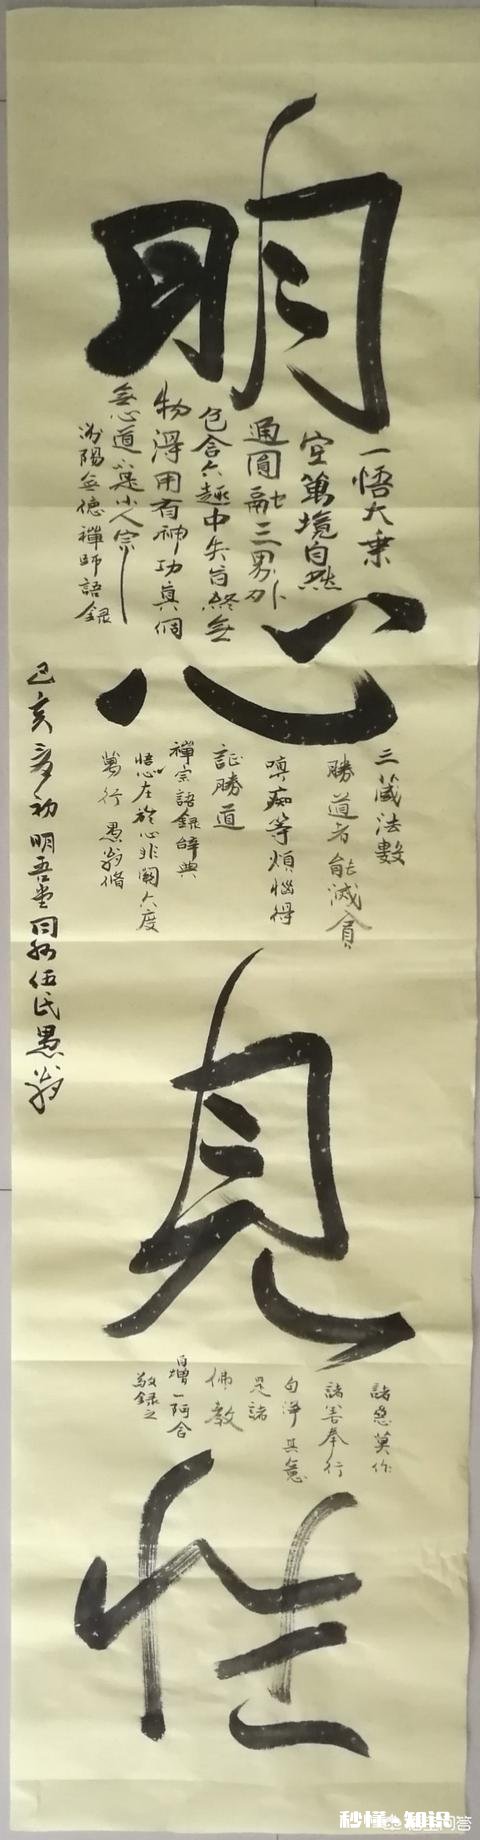 明
一悟大乗
空萬境自然
通圓融三界外
包含六趣中失旨終無
物得用有神功真個
無心道
汾陽無德禪師語録
心
三藏法數
勝道者能滅貪
嗔痴等煩惱得
証勝道
禪宗語録辞典
悟心在於心非關六度
萬行 愚翁脩
己亥冬初 明吾堂 伍氏愚翁
見
諸惡莫作
諸善奉行
自淨其意
是諸
佛教
增一阿含
敬録之
性
秒懂·知识